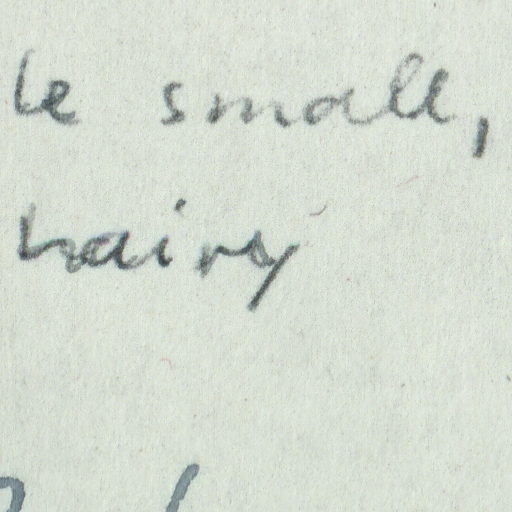 le small,
hairy